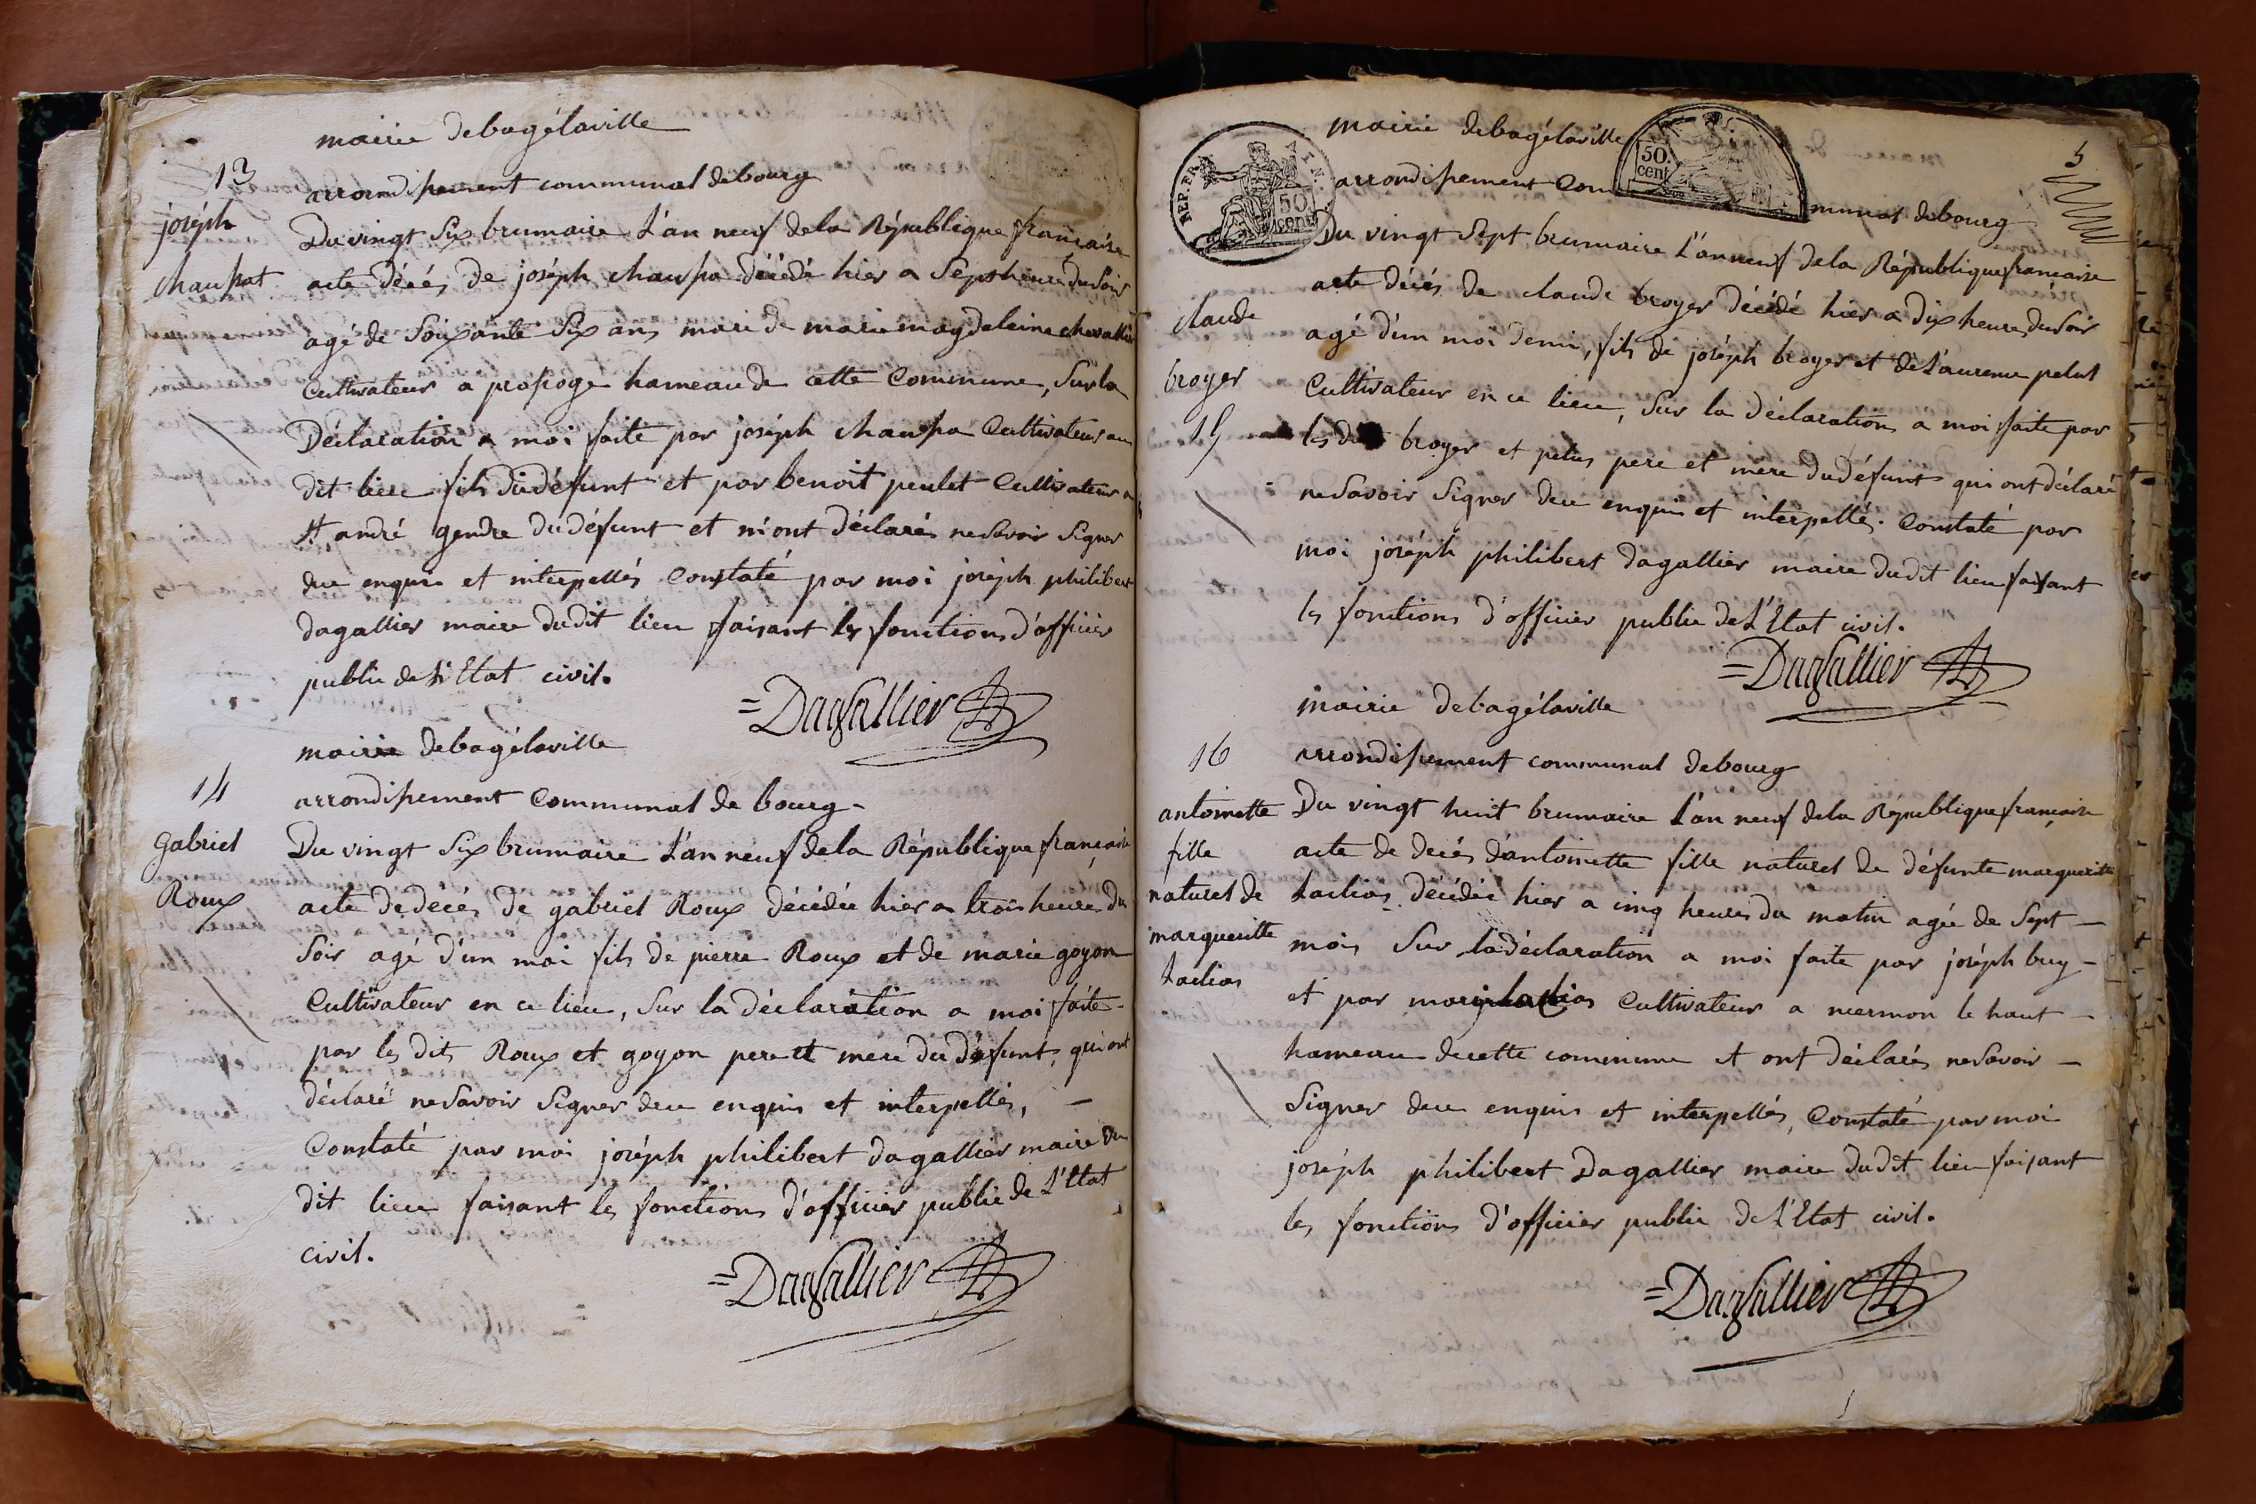 mairie debagélaville
13
arrondissement communal debourg
joséph
chaupat
Du vingt Six brumaire L'an neuf dela République francaise
acte décés de joséph chaupa décédé hier a Sept heure du Soir
agé de Soixante Six ans mari de marie magdeleine chevallier
Cultivateur a propoge hameau de cette Commune, Sur la
Déclaration a moi faite par joséph chaupa Cultivateur au
dit lieu fils dudéfunt et par benoit peulet Cultivateur a
St andré gendre dudéfunt et m'ont déclarés nesavoir Signer
deu enquis et interpellés Constaté par moi joséph philibert
dagallier maire dudit lieu faisant les fonctions d'officier
public de L'Etat civil.
=Dagallier
mairie debagélaville
14
arrondissement Communal de bourg
gabriel
Roux
Du vingt Six brumaire L'an neuf dela République francaise
acte de decés de gabriel Roux décédée hier a trois heures du
Soir agé d'un moi fils de pierre Roux et de marie goyon
Cultivateur en ce lieu, Sur la déclaration a moi faite
par les dits Roux et goyon pere et mere du défunt, qui ont
déclaré nesavoir Signer deu enquis et interpellés,
Constaté par moi joséph philibert dagallier maire du
dit lieu faisant les fonctions d'officier public de L'Etat
civil.
=Dagallier
5
mairie debagélaville
REP. FRA
50 cent
50. cent
arrondissement Communal debourg
claude
broyer
15
Du vingt Sept brumaire L'an neuf dela République francaise
acte décés de claude broyer décédé hier a dix heure du Soir
agé d'un moi demi, fils de joséph broyer et de Laurence pelus
Cultivateur en ce lieu, Sur la déclaration a moi faite par
les dits broyer et pelus pere et mere dudéfunt qui ont déclaré
nesavoir Signer deu enquis et interpellés. Constaté par
moi joséph philibert dagallier maire dudit lieu faisant
les fonctions d'officier public de L'Etat civil.
=Dagallier
mairie debagélaville
16
arrondissement communal debourg
antoinette
fille
naturel de
marguerite
Du vingt huit brumaire L'an neuf dela République francaise
acte de decés d'antoinette fille naturel de défunte marguerite
décédée hier a cinq heures du matin agée de Sept
mois Sur la déclaration a moi faite par joséph buy
et par Cultivateur a mermon le haut
hameau decette commune et ont déclarés nesavoir
Signer deu enquis et interpellés, Constaté par moi
joséph philibert Dagallier maire dudit lieu faisant
les fonctions d'officier public de L'Etat civil.
=Dagallier